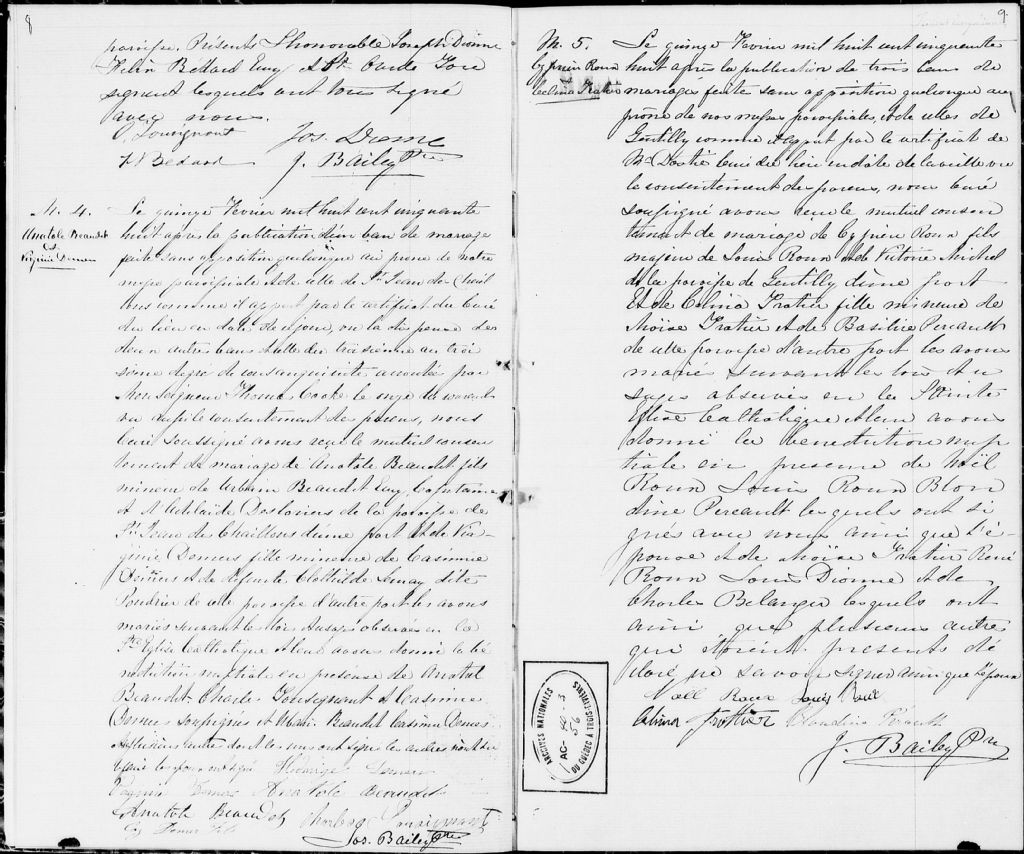 8
paroisse. Présents L'honorable Joseph Dionne
Bédard Ecuy et
signent lesquels ont tous signé
avec nous.
Louvignont Jos. Dionne
Bédard J. Bailey Ptre
M. 4. Le quinze Fevrier mil huit cent cinquante
Anatole Beaudet huit après la publication d'un ban de mariage
et faite sans opposition quelconque au prone de notre
Virginie Demers messe paroissiale et de celle de St. Jean de Chail
lons comme il appert par le certificat du Curé
du lieu en date de ce jour, vu la dispense des
deux autres bans et celle du troisième au troi
sième degré de consanguinité accordée par
Monseigneur Thomas Cooke le onze du courant
vu aussi le consentement des parens, nous
Curé soussigné avons reçu le mutuel consen
tement de mariage de Anatole Beaudet fils
mineur de Urbain Beaudet Ecuy. Capitaine
et d'Adelaide Deslauriers de la paroisse de
St. Jean de Chaillons d'une part Et de Vir-
ginie Demers fille mineure de Casimir
Demers et de défunte Clothilde Lemay dite
Poudrier de cette paroisse d'autre part les avons
mariés suivant les lois et usages observés en la
Ste. Eglise Catholique et leur avons donné la bé
nédiction nuptiale en présence de Anatol
Beaudet. Charles et Casimir
Demers soussignés et Beaudet Casimir Demers
et plusieurs autres dont les uns ont signé les autres n'ont su
Hedwige Demers
Virginie Demers Anatole Beaudet
Anatole Beaudet Charles
Demers
Jos. Bailey Ptre
9
M. 5. Le quinze Fevrier mil huit cent cinquante
Cyprien Roux huit après la publication de trois bans de
Celina Trotier mariage faite sans opposition quelconque au
prône de nos messes paroissiales, et de celles de
Gentilly comme il appert par le certificat de
Mr. Dostie Curé du lieu en date de la veille, vu
le consentement des parens, nous Curé
soussigné avons reçu le mutuel consen
tement de mariage de Cyprien Roux fils
majeur de Louis Roux et de Victoire Michel
de la paroisse de Gentilly d'une part
Et de Celina Trotier fille mineure de
Moïse Trotier et de Basilise Perault
de cette paroisse d'autre part les avons
mariés suivant les lois et u
sages observés en la Sainte
Eglise Catholique et leur avons
donné la bénédiction nup
tiale en présence de Noël
Roux Louis Roux Blon
dine Perault lesquels ont si
gnés avec nous ainsi que l'é-
pouse et de Moïse Trotier René
Roux Louis Dionne et de
Charles Belanger lesquels ont
ainsi que plusieurs autres
qui étoient présents dé
claré ne savoir signer ainsi que l'époux
Noell Roux Louis Roux
Celina Trottier Claudine Perault
J. Bailey Ptre
ARCHIVES NATIONALES
AC-80-3
56
DU QUÉBEC À TROIS-RIVIÈRES